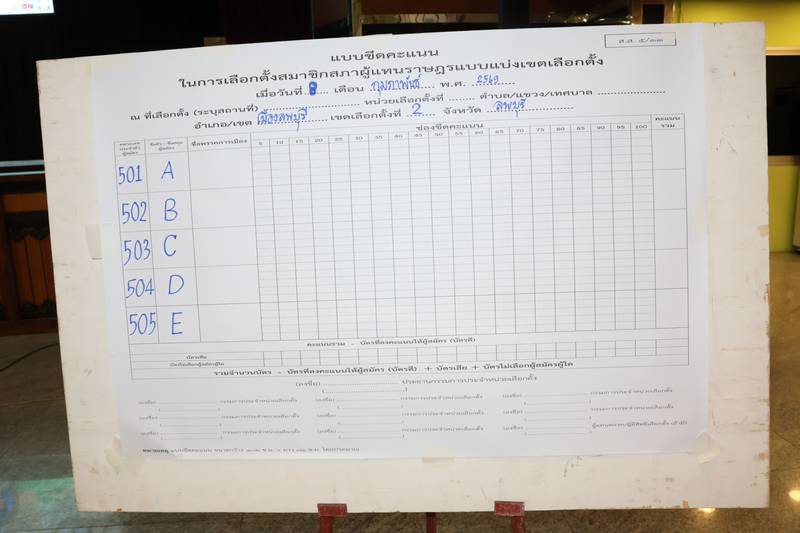 ส.ส. ๕/๑๑
แบบขีดคะแนน
ในการเลือกตั้งสมาชิกสภาผู้แทนราษฎรแบบแบ่งเขตเลือกตั้ง
เมื่อวันที่ 8 เดือน กุมภาพันธ์ พ.ศ. 2569
ณ ที่เลือกตั้ง (ระบุสถานที่) หน่วยเลือกตั้งที่ ตำบล/แขวง/เทศบาล
อำเภอ/เขต เมืองลพบุรี เขตเลือกตั้งที่ 2 จังหวัด ลพบุรี
หมายเลขประจำตัวผู้สมัคร ชื่อตัว - ชื่อสกุลผู้สมัคร ชื่อพรรคการเมือง ช่องขีดคะแนน คะแนนรวม
5 10 15 20 25 30 35 40 45 50 55 60 65 70 75 80 85 90 95 100
501 A
502 B
503 C
504 D
505 E
คะแนนรวม - บัตรที่ลงคะแนนให้ผู้สมัคร (บัตรดี)
บัตรเสีย
บัตรไม่เลือกผู้สมัครผู้ใด
รวมจำนวนบัตร - บัตรที่ลงคะแนนให้ผู้สมัคร (บัตรดี) + บัตรเสีย + บัตรไม่เลือกผู้สมัครผู้ใด
(ลงชื่อ) ประธานกรรมการประจำหน่วยเลือกตั้ง
(ลงชื่อ) กรรมการประจำหน่วยเลือกตั้ง (ลงชื่อ) กรรมการประจำหน่วยเลือกตั้ง (ลงชื่อ) กรรมการประจำหน่วยเลือกตั้ง
(ลงชื่อ) กรรมการประจำหน่วยเลือกตั้ง (ลงชื่อ) กรรมการประจำหน่วยเลือกตั้ง (ลงชื่อ) กรรมการประจำหน่วยเลือกตั้ง
(ลงชื่อ) กรรมการประจำหน่วยเลือกตั้ง (ลงชื่อ) กรรมการประจำหน่วยเลือกตั้ง (ลงชื่อ)
หมายเหตุ แบบขีดคะแนน ขนาดกว้าง